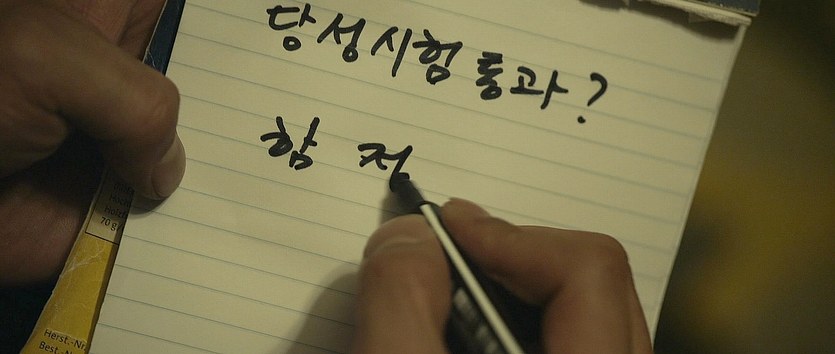 당성시험 통과?
함 정
Herst.-Nr
Best.-N